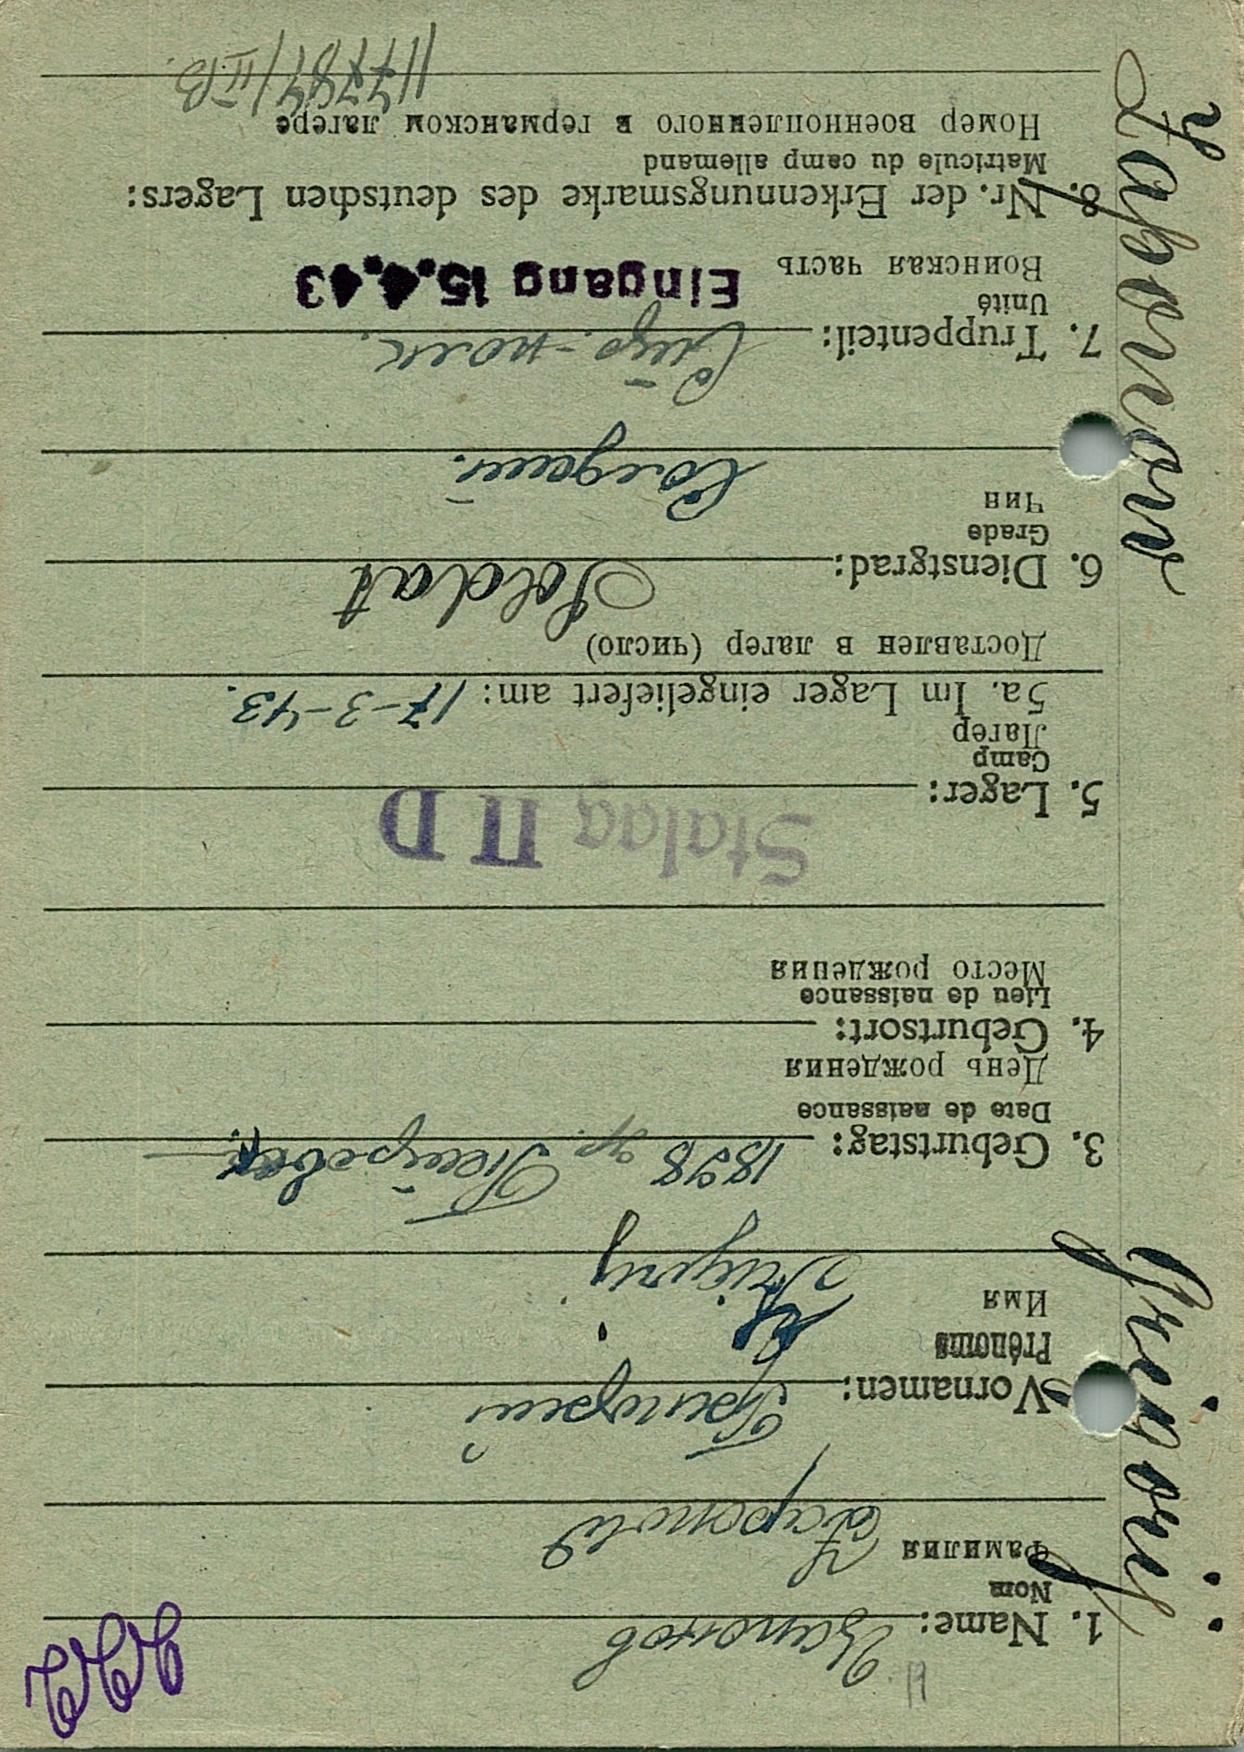 1. Name: Цапонов
Nom
Фамилия
Vornamen: Григорий
Prénoms
Имя
Grigorij
3. Geburtstag: 1898 гр.
Date de naissance
День рождения
4. Geburtsort:
Lieu de naissance
Место рождения
Stalag II D
5. Lager:
Camp
Лагер
5a. Im Lager eingeliefert am: 17-3-43.
Доставлен в лагер (число)
Soldat
6. Dienstgrad:
Grade
Чин
Солдат.
7. Truppenteil:
Unité
Воинская часть
Eingang 15.4.43
8. Nr. der Erkennungsmarke des deutschen Lagers:
Matricule du camp allemand
Номер военнопленного в германском лагере
117784/II B.
Grigorij